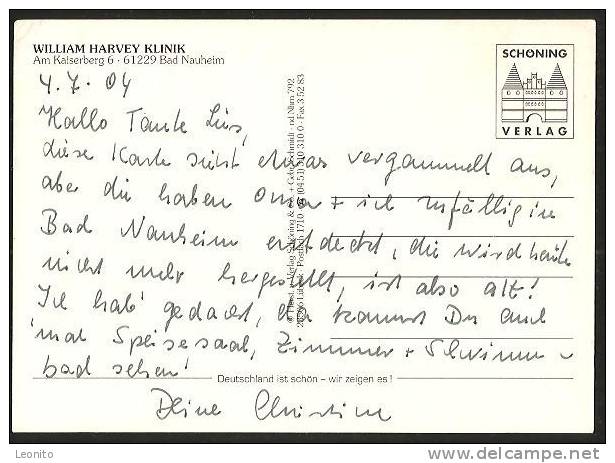 WILLIAM HARVEY KLINIK
Am Kaiserberg 6 · 61229 Bad Nauheim
SCHÖNING
VERLAG
4.7.04
Hallo Tante
diese Karte sieht etwas vergammelt aus,
aber die haben Oma + ich zufällig in
Bad Nauheim entdeckt, die wird heute
nicht mehr hergestellt, ist also alt!
Ich hab' gedacht, da kannst Du auch
'mal Speisesaal, Zimmer + Schwimm-
bad sehen!
Deine Christine
Deutschland ist schön – wir zeigen es!
Verlag Schöning & Co. + Gebr. Schmidt · nd Nhm 792
Lübeck · Postfach 1710 · (04 51) 3 10 31 0 · Fax 3 52 83
Leonito
delcampe.net